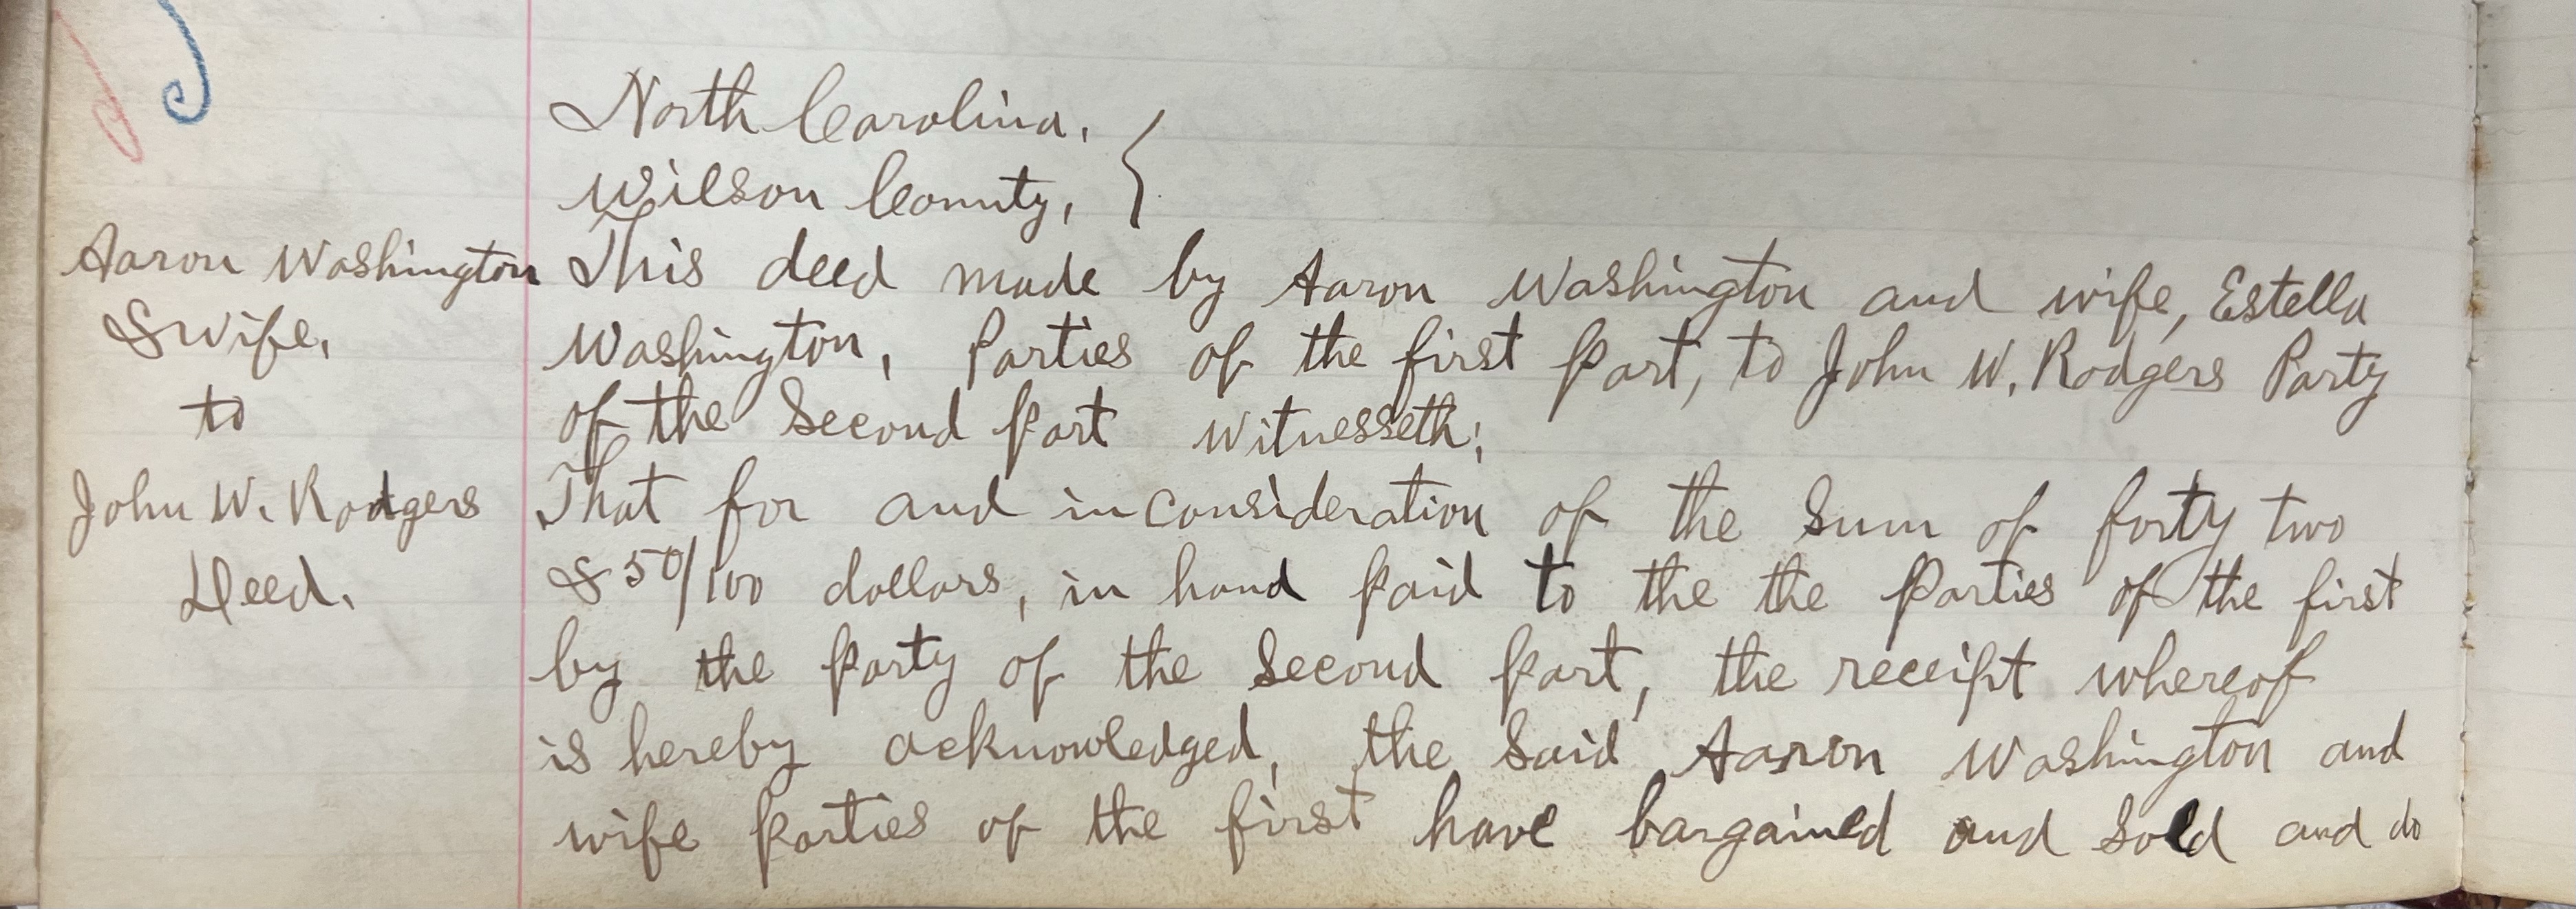 North Carolina,
Wilson County,
Aaron Washington
& Wife,
to
John W. Rodgers
Deed.
This deed made by Aaron Washington and wife, Estella
Washington, Parties of the first part, to John W. Rodgers Party
of the Second part witnesseth;
That for and in consideration of the Sum of forty two
& 50/100 dollars, in hand paid to the the parties of the first
by the party of the Second part, the receipt whereof
is hereby acknowledged, the Said Aaron Washington and
wife parties of the first have bargained and Sold and do